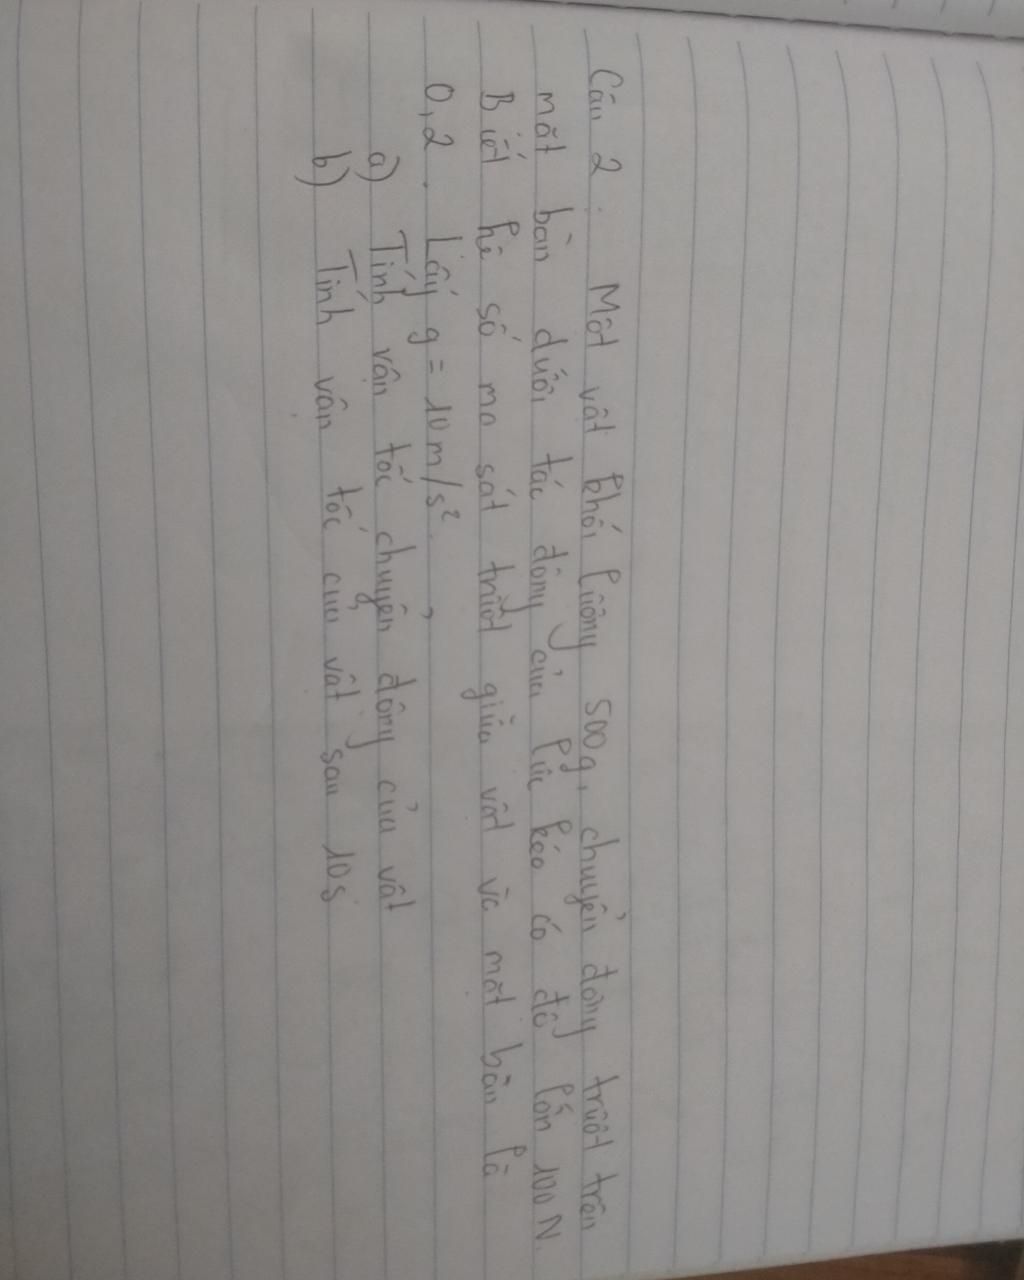 Câu 2. Một vật khối lượng 500g, chuyển động trượt trên
mặt bàn dưới tác động của lực kéo có độ lớn 100N.
Biết hệ số ma sát trượt giữa vật và mặt bàn là
0,2. Lấy g = 10m/s².
a) Tính vận tốc chuyển động của vật
b) Tính vận tốc của vật sau 10s